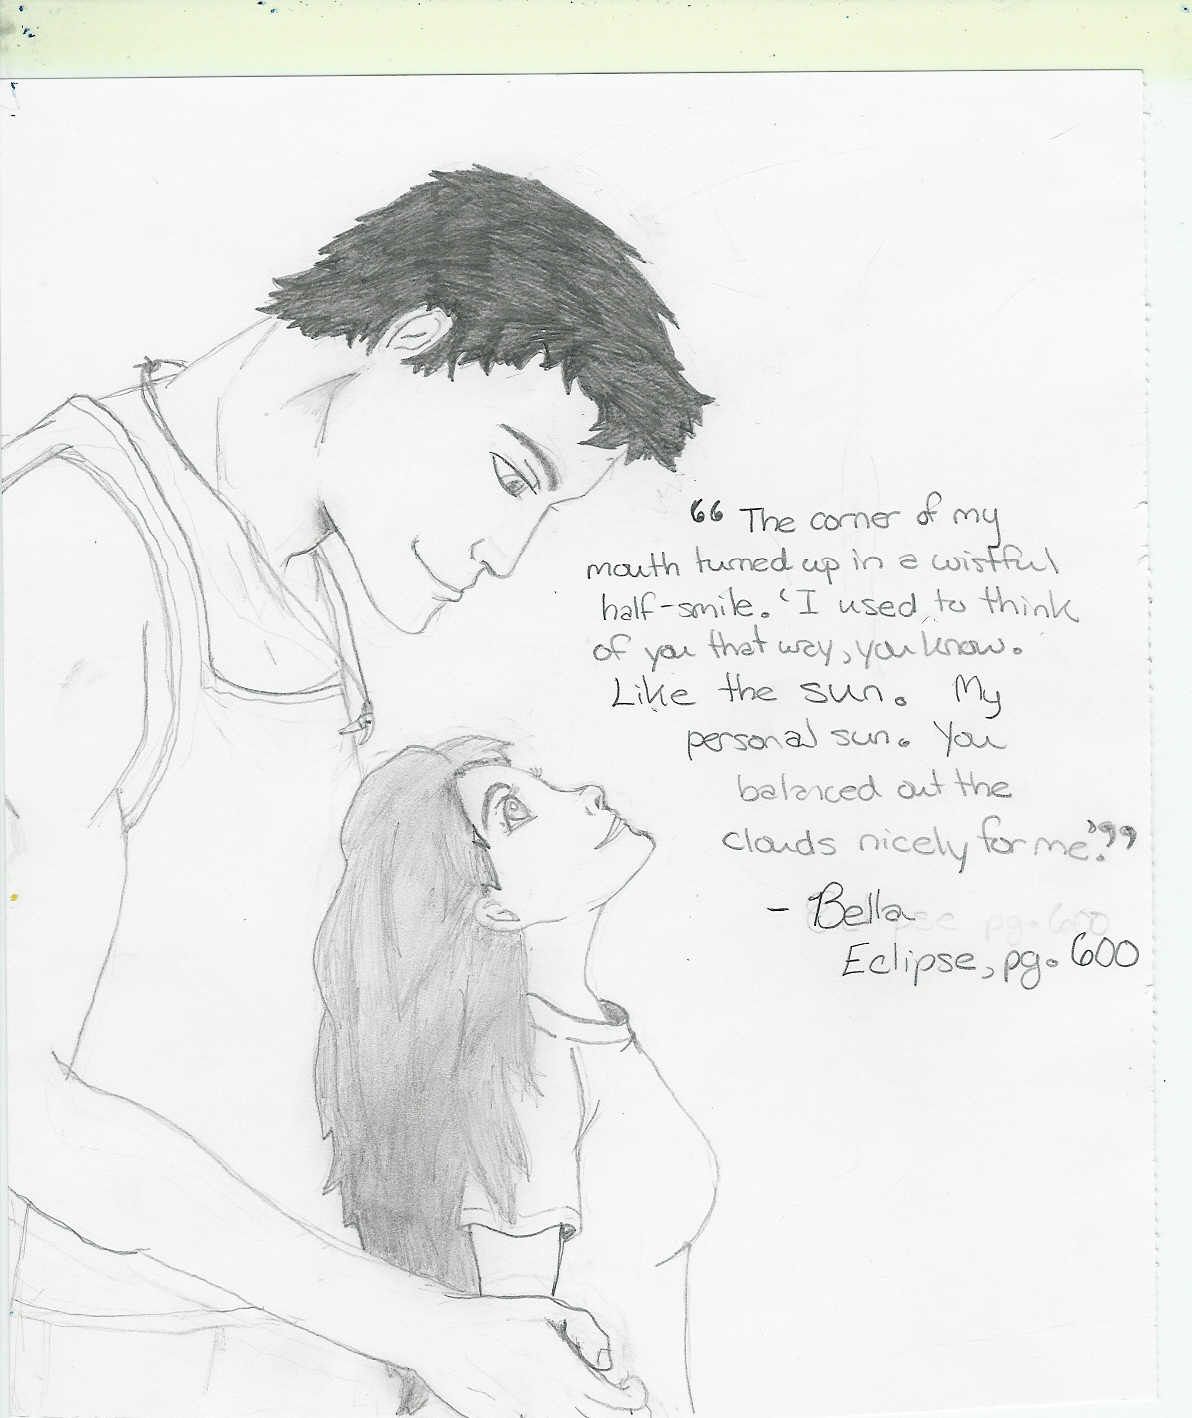 “The corner of my
mouth turned up in a wistful
half-smile. ‘I used to think
of you that way, you know.
Like the sun. My
personal sun. You
balanced out the
clouds nicely for me.’”
- Bella
Eclipse, pg. 600